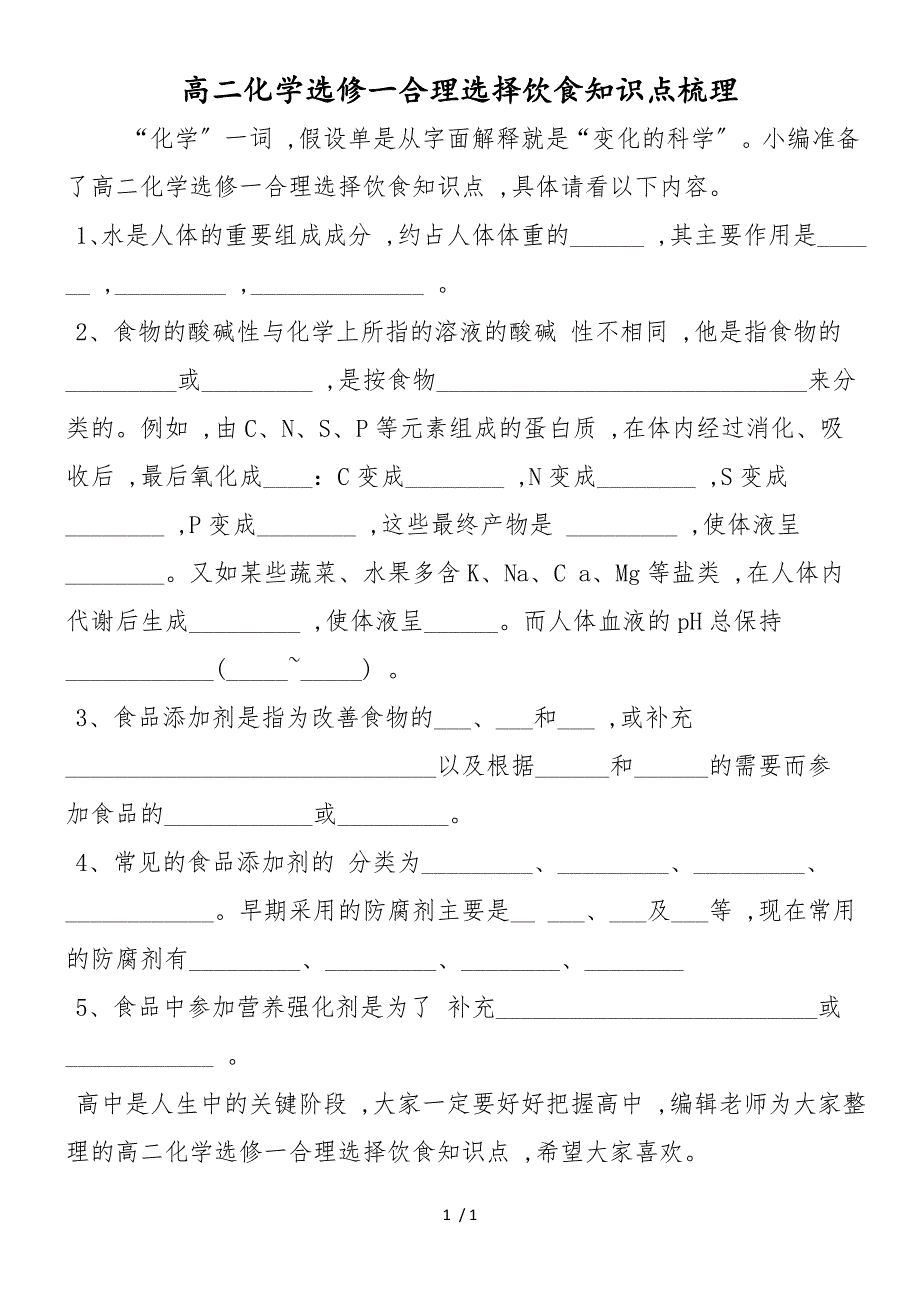 高二化学选修一合理选择饮食知识点梳理
“化学〞一词 ,假设单是从字面解释就是“变化的科学〞。小编准备
了高二化学选修一合理选择饮食知识点 ,具体请看以下内容。
1、水是人体的重要组成成分 ,约占人体体重的______ ,其主要作用是____
__ ,_________ ,______________ 。
2、食物的酸碱性与化学上所指的溶液的酸碱 性不相同 ,他是指食物的
_________或_________ ,是按食物______________________________来分
类的。例如 ,由C、N、S、P等元素组成的蛋白质 ,在体内经过消化、吸
收后 ,最后氧化成____：C变成________ ,N变成________ ,S变成
________ ,P变成________ ,这些最终产物是 _________ ,使体液呈
________。又如某些蔬菜、水果多含K、Na、C a、Mg等盐类 ,在人体内
代谢后生成_________ ,使体液呈______。而人体血液的pH总保持
____________(_____~_____) 。
3、食品添加剂是指为改善食物的___、___和___ ,或补充
______________________________以及根据______和______的需要而参
加食品的____________或_________。
4、常见的食品添加剂的 分类为_________、_________、_________、
____________。早期采用的防腐剂主要是__ ___、___及___等 ,现在常用
的防腐剂有_________、_________、________、________
5、食品中参加营养强化剂是为了 补充__________________________或
____________ 。
高中是人生中的关键阶段 ,大家一定要好好把握高中 ,编辑老师为大家整
理的高二化学选修一合理选择饮食知识点 ,希望大家喜欢。
1 / 1